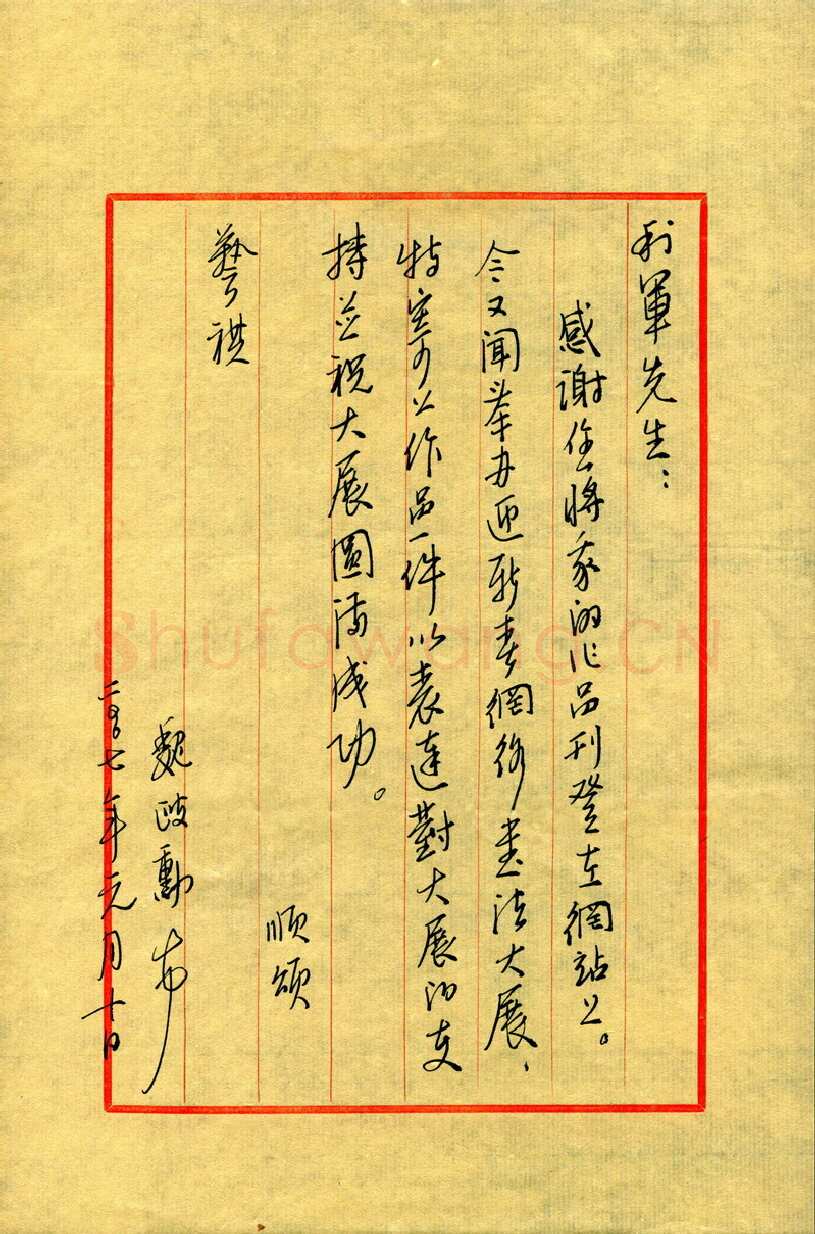 利軍先生：
感谢您將我的作品刊登在網站上。
今又闻举办迎新春網络书法大展、
特寄上作品一件以表达對大展的支
持並祝大展圆满成功。
顺颂
藝祺
魏政勳
二〇〇七年元月十日
Shufawang.CN